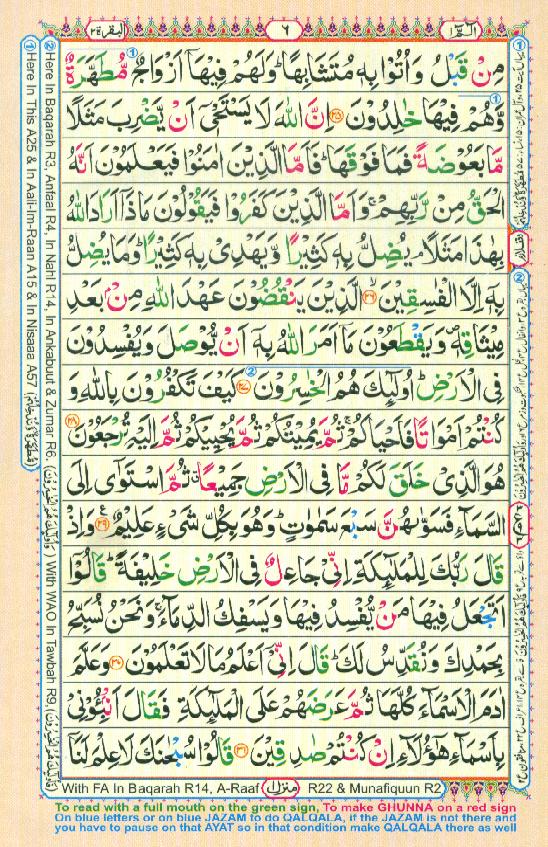 البقرة ٢
٦
الٓمّٓ ١
مِنْ قَبْلُ وَاُتُوْا بِهٖ مُتَشَابِهًا وَلَهُمْ فِيْهَآ اَزْوَاجٌ مُّطَهَّرَةٌ
وَّهُمْ فِيْهَا خٰلِدُوْنَ ﴿٢٥﴾ اِنَّ اللّٰهَ لَا يَسْتَحْيٖٓ اَنْ يَّضْرِبَ مَثَلًا
مَّا بَعُوْضَةً فَمَا فَوْقَهَا فَاَمَّا الَّذِيْنَ اٰمَنُوْا فَيَعْلَمُوْنَ اَنَّهُ
الْحَقُّ مِنْ رَّبِّهِمْ وَاَمَّا الَّذِيْنَ كَفَرُوْا فَيَقُوْلُوْنَ مَاذَآ اَرَادَ اللّٰهُ
بِهٰذَا مَثَلًا يُضِلُّ بِهٖ كَثِيْرًا وَّيَهْدِيْ بِهٖ كَثِيْرًا وَمَا يُضِلُّ
بِهٖٓ اِلَّا الْفٰسِقِيْنَ ﴿٢٦﴾ الَّذِيْنَ يَنْقُضُوْنَ عَهْدَ اللّٰهِ مِنْ بَعْدِ
مِيْثَاقِهٖ وَيَقْطَعُوْنَ مَآ اَمَرَ اللّٰهُ بِهٖٓ اَنْ يُّوْصَلَ وَيُفْسِدُوْنَ
فِى الْاَرْضِ اُولٰٓئِكَ هُمُ الْخٰسِرُوْنَ ﴿٢٧﴾ كَيْفَ تَكْفُرُوْنَ بِاللّٰهِ وَ
كُنْتُمْ اَمْوَاتًا فَاَحْيَاكُمْ ثُمَّ يُمِيْتُكُمْ ثُمَّ يُحْيِيْكُمْ ثُمَّ اِلَيْهِ تُرْجَعُوْنَ ﴿٢٨﴾
هُوَ الَّذِيْ خَلَقَ لَكُمْ مَّا فِى الْاَرْضِ جَمِيْعًا ثُمَّ اسْتَوٰٓى اِلَى
السَّمَآءِ فَسَوّٰىهُنَّ سَبْعَ سَمٰوٰتٍ وَهُوَ بِكُلِّ شَيْءٍ عَلِيْمٌ ﴿٢٩﴾ وَاِذْ
قَالَ رَبُّكَ لِلْمَلٰٓئِكَةِ اِنِّيْ جَاعِلٌ فِى الْاَرْضِ خَلِيْفَةً قَالُوْٓا
اَتَجْعَلُ فِيْهَا مَنْ يُّفْسِدُ فِيْهَا وَيَسْفِكُ الدِّمَآءَ وَنَحْنُ نُسَبِّحُ
بِحَمْدِكَ وَنُقَدِّسُ لَكَ قَالَ اِنِّيْٓ اَعْلَمُ مَا لَا تَعْلَمُوْنَ ﴿٣٠﴾ وَعَلَّمَ
اٰدَمَ الْاَسْمَآءَ كُلَّهَا ثُمَّ عَرَضَهُمْ عَلَى الْمَلٰٓئِكَةِ فَقَالَ اَنْۢبِـُٔوْنِيْ
بِاَسْمَآءِ هٰٓؤُلَآءِ اِنْ كُنْتُمْ صٰدِقِيْنَ ﴿٣١﴾ قَالُوْا سُبْحٰنَكَ لَا عِلْمَ لَنَآ
① Here In This A25 & In Aali-Im-Raan A15 & In Nisaaa A57
② Here In Baqarah R3, Anfaal R4, In Nahl R14, In Ankabuut & Zumar R6. (اُولٰٓئِكَ هُمُ الْخٰسِرُوْنَ) With WAO In Tawbah R9, (وَاُولٰٓئِكَ هُمُ الْخٰسِرُوْنَ)
With FA In Baqarah R14, A-Raaf منزل ١ R22 & Munafiquun R2
To read with a full mouth on the green sign, To make GHUNNA on a red sign
On blue letters or on blue JAZAM to do QALQALA, if the JAZAM is not there and
you have to pause on that AYAT so in that condition make QALQALA there as well